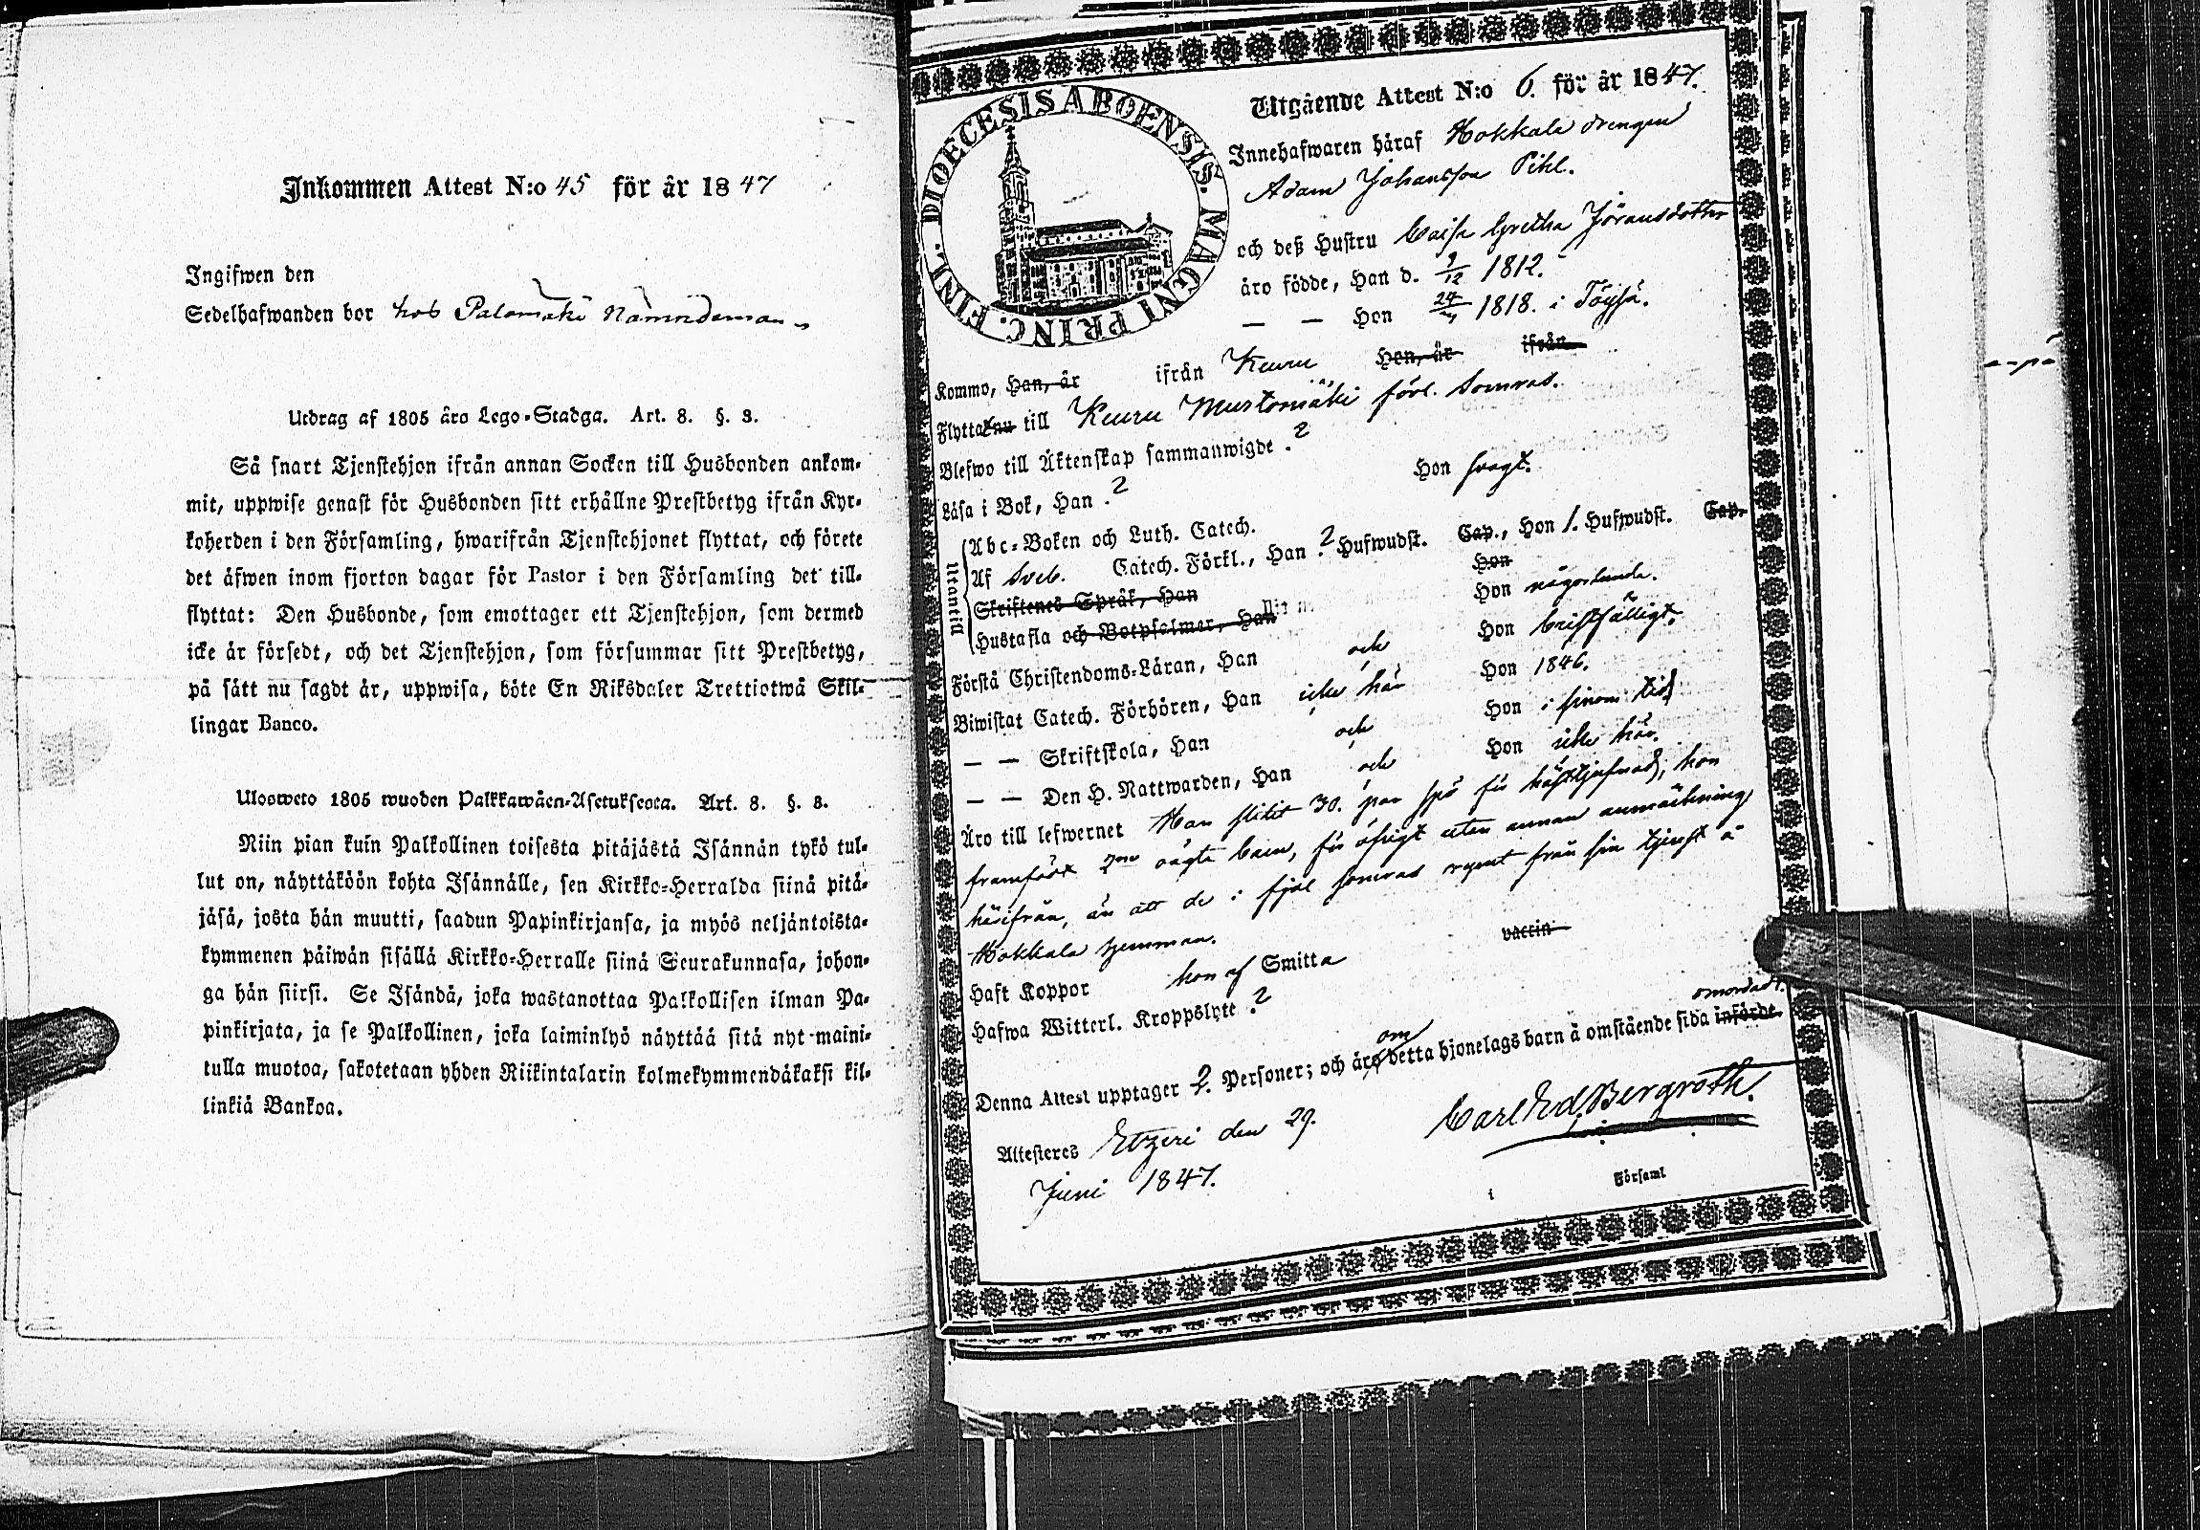 Inkommen Attest N:o 45 för år 1847
Ingifwen den
Sedelhafwanden bor hos Palomäki Nämndeman
Utdrag af 1805 års Lego-Stadga. Art. 8. §. 3.
Så snart Tjenstehjon ifrån annan Socken till Husbonden ankom-
mit, uppwise genast för Husbonden sitt erhållne Prestbetyg ifrån Kyr-
koherden i den Församling, hwarifrån Tjenstehjonet flyttat, och förete
det äfwen inom fjorton dagar för Pastor i den Församling det till-
flyttat: Den Husbonde, som emottager ett Tjenstehjon, som dermed
icke är försedt, och det Tjenstehjon, som försummar sitt Prestbetyg,
på sätt nu sagdt är, uppwisa, böte En Riksdaler Trettiotwå Skil-
lingar Banco.
Ulosweto 1805 wuoden Palkkawäen-Asetuksesta. Art. 8. §. 3.
Niin pian kuin Palkollinen toisesta pitäjästä Isännän tykö tul-
lut on, näyttäköön kohta Isännälle, sen Kirkko-Herralda siinä pitä-
jäsä, josta hän muutti, saadun Papinkirjansa, ja myös neljäntoista-
kymmenen päiwän sisällä Kirkko-Herralle siinä Seurakunnasa, johon-
ga hän siirsi. Se Isändä, joka wastanottaa Palkollisen ilman Pa-
pinkirjata, ja se Palkollinen, joka laiminlyö näyttää sitä nyt maini-
tulla muotoa, sakotetaan yhden Riikintalarin kolmekymmendäkaksi kil-
linkiä Bankoa.
DIOECESIS ABOENSIS. MAGNI PRINC. FINL.
Utgående Attest N:o 6. för år 1847.
Innehafwaren häraf Hokkala drengen
Adam Johansson Pihl.
och deß Hustru Caisa Gretha Jöransdotter
äro födde, Han d. 9/12 1812.
— — Hon 24/ 1818. i Töysä.
Kommo, Han, år ifrån Keuru Hon, år ifrån
Flytta nu till Keuru Murtomäki förl. Somras.
Blefwo till Äktenskap sammanwigde ?
Läsa i Bok, Han ? Hon svagt.
Utantill
Abc-Boken och Luth. Catech.
Af Sveb. Catech. Förkl., Han ? Hufwudst. Cap., Hon 1. Hufwudst. Cap.
Skriftenes Språk, Han Hon
Hustafla och Botpsalmer, Han Hon någorlunda.
Förstå Christendoms-Läran, Han och Hon bristfälligt.
Biwistat Catech. Förhören, Han icke här Hon 1846.
— — Skriftskola, Han och Hon i sinom tid
— — Den H. Nattwarden, Han och Hon icke här.
Äro till lefwernet Han slitit 30. par spö för hästtjufnad, hon
framfödt 2ne oägta barn, för öfrigt utan annan anmärkning
härifrån, än att de i fjol somras rymt från sin tjenst å
Hokkala hemman.
Haft Koppor hon af Smitta vaccin
Hafwa Witterl. Kroppslyte ?
Denna Attest upptager 2. Personer; och äro om detta hjonelags barn å omstående sida införde. omordadt.
Attesteres Etzeri den 29.
Juni 1847.
Carl Ed. Bergroth.
i Församl